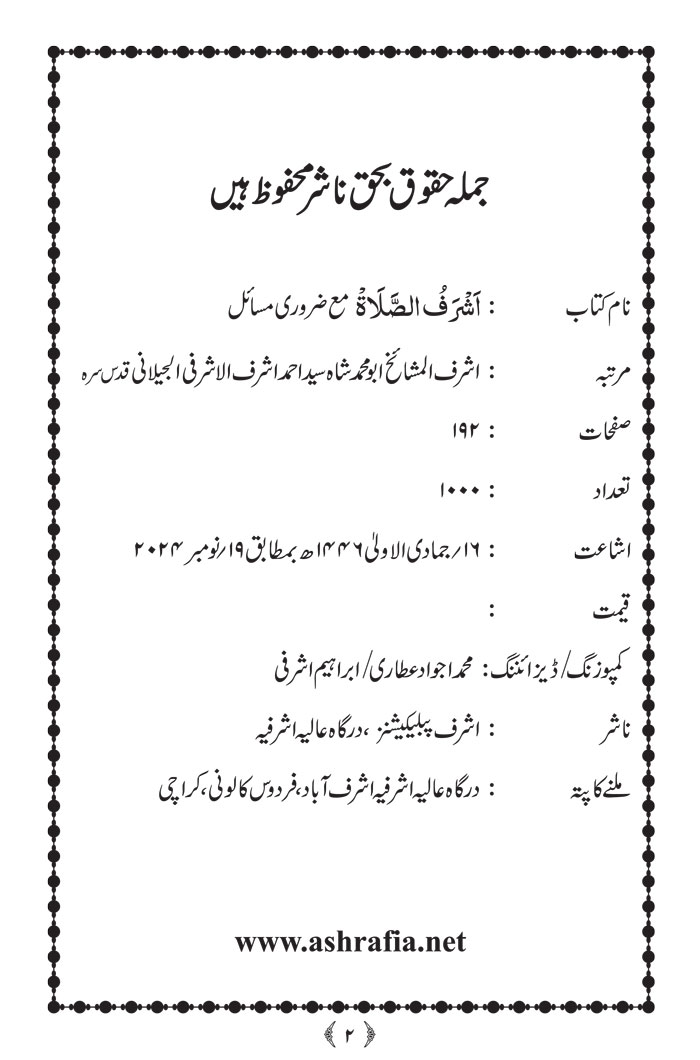 جملہ حقوق بحق ناشر محفوظ ہیں
نام کتاب : اَشْرَفُ الصَّلَاۃْ مع ضروری مسائل
مرتبہ : اشرف المشائخ ابو محمد شاہ سید احمد اشرف الاشرفی الجیلانی قدس سرہ
صفحات : ۱۹۲
تعداد : ۱۰۰۰
اشاعت : ۱۶/ جمادی الاولیٰ ۱۴۴۶ھ بمطابق ۱۹/ نومبر ۲۰۲۴
قیمت :
کمپوزنگ/ ڈیزائننگ : محمد اجواد عطاری/ ابراہیم اشرفی
ناشر : اشرف پبلیکیشنز ، درگاہ عالیہ اشرفیہ
ملنے کا پتہ : درگاہ عالیہ اشرفیہ اشرف آباد، فردوس کالونی، کراچی
www.ashrafia.net
﴿ ۲ ﴾